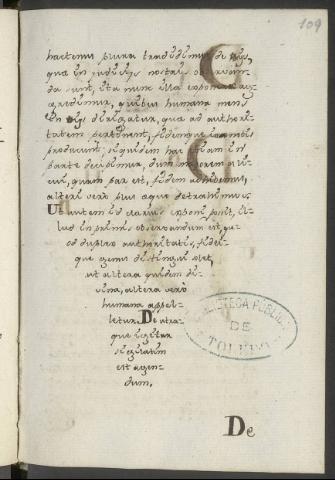 109
hactenus plura tradidimus de iis,
quæ in judiciis nostris observan-
da sunt, ita nunc illa exponere ag-
gredimur, quibus humana mens
in iis dirigatur, quæ ad authori-
tatem pertinent, fidemque hominis
producunt; siquidem hac etiam in
parte decipimur, dum majorem ali-
cui, quam par est, fidem adhibemus,
alteri vero plus æque detrahimus.
Ut autem id clarius exponi possit, il-
lud in primis observandum est, quo-
ad duplex authoritatis, fidei-
que genus distingui solet,
ut altera quidem di-
vina, altera vero
humana appel-
letur. De utra-
que igitur
sigillatim
est agen-
dum.
BIBLIOTECA PUBLICA
DE
TOLEDO
De